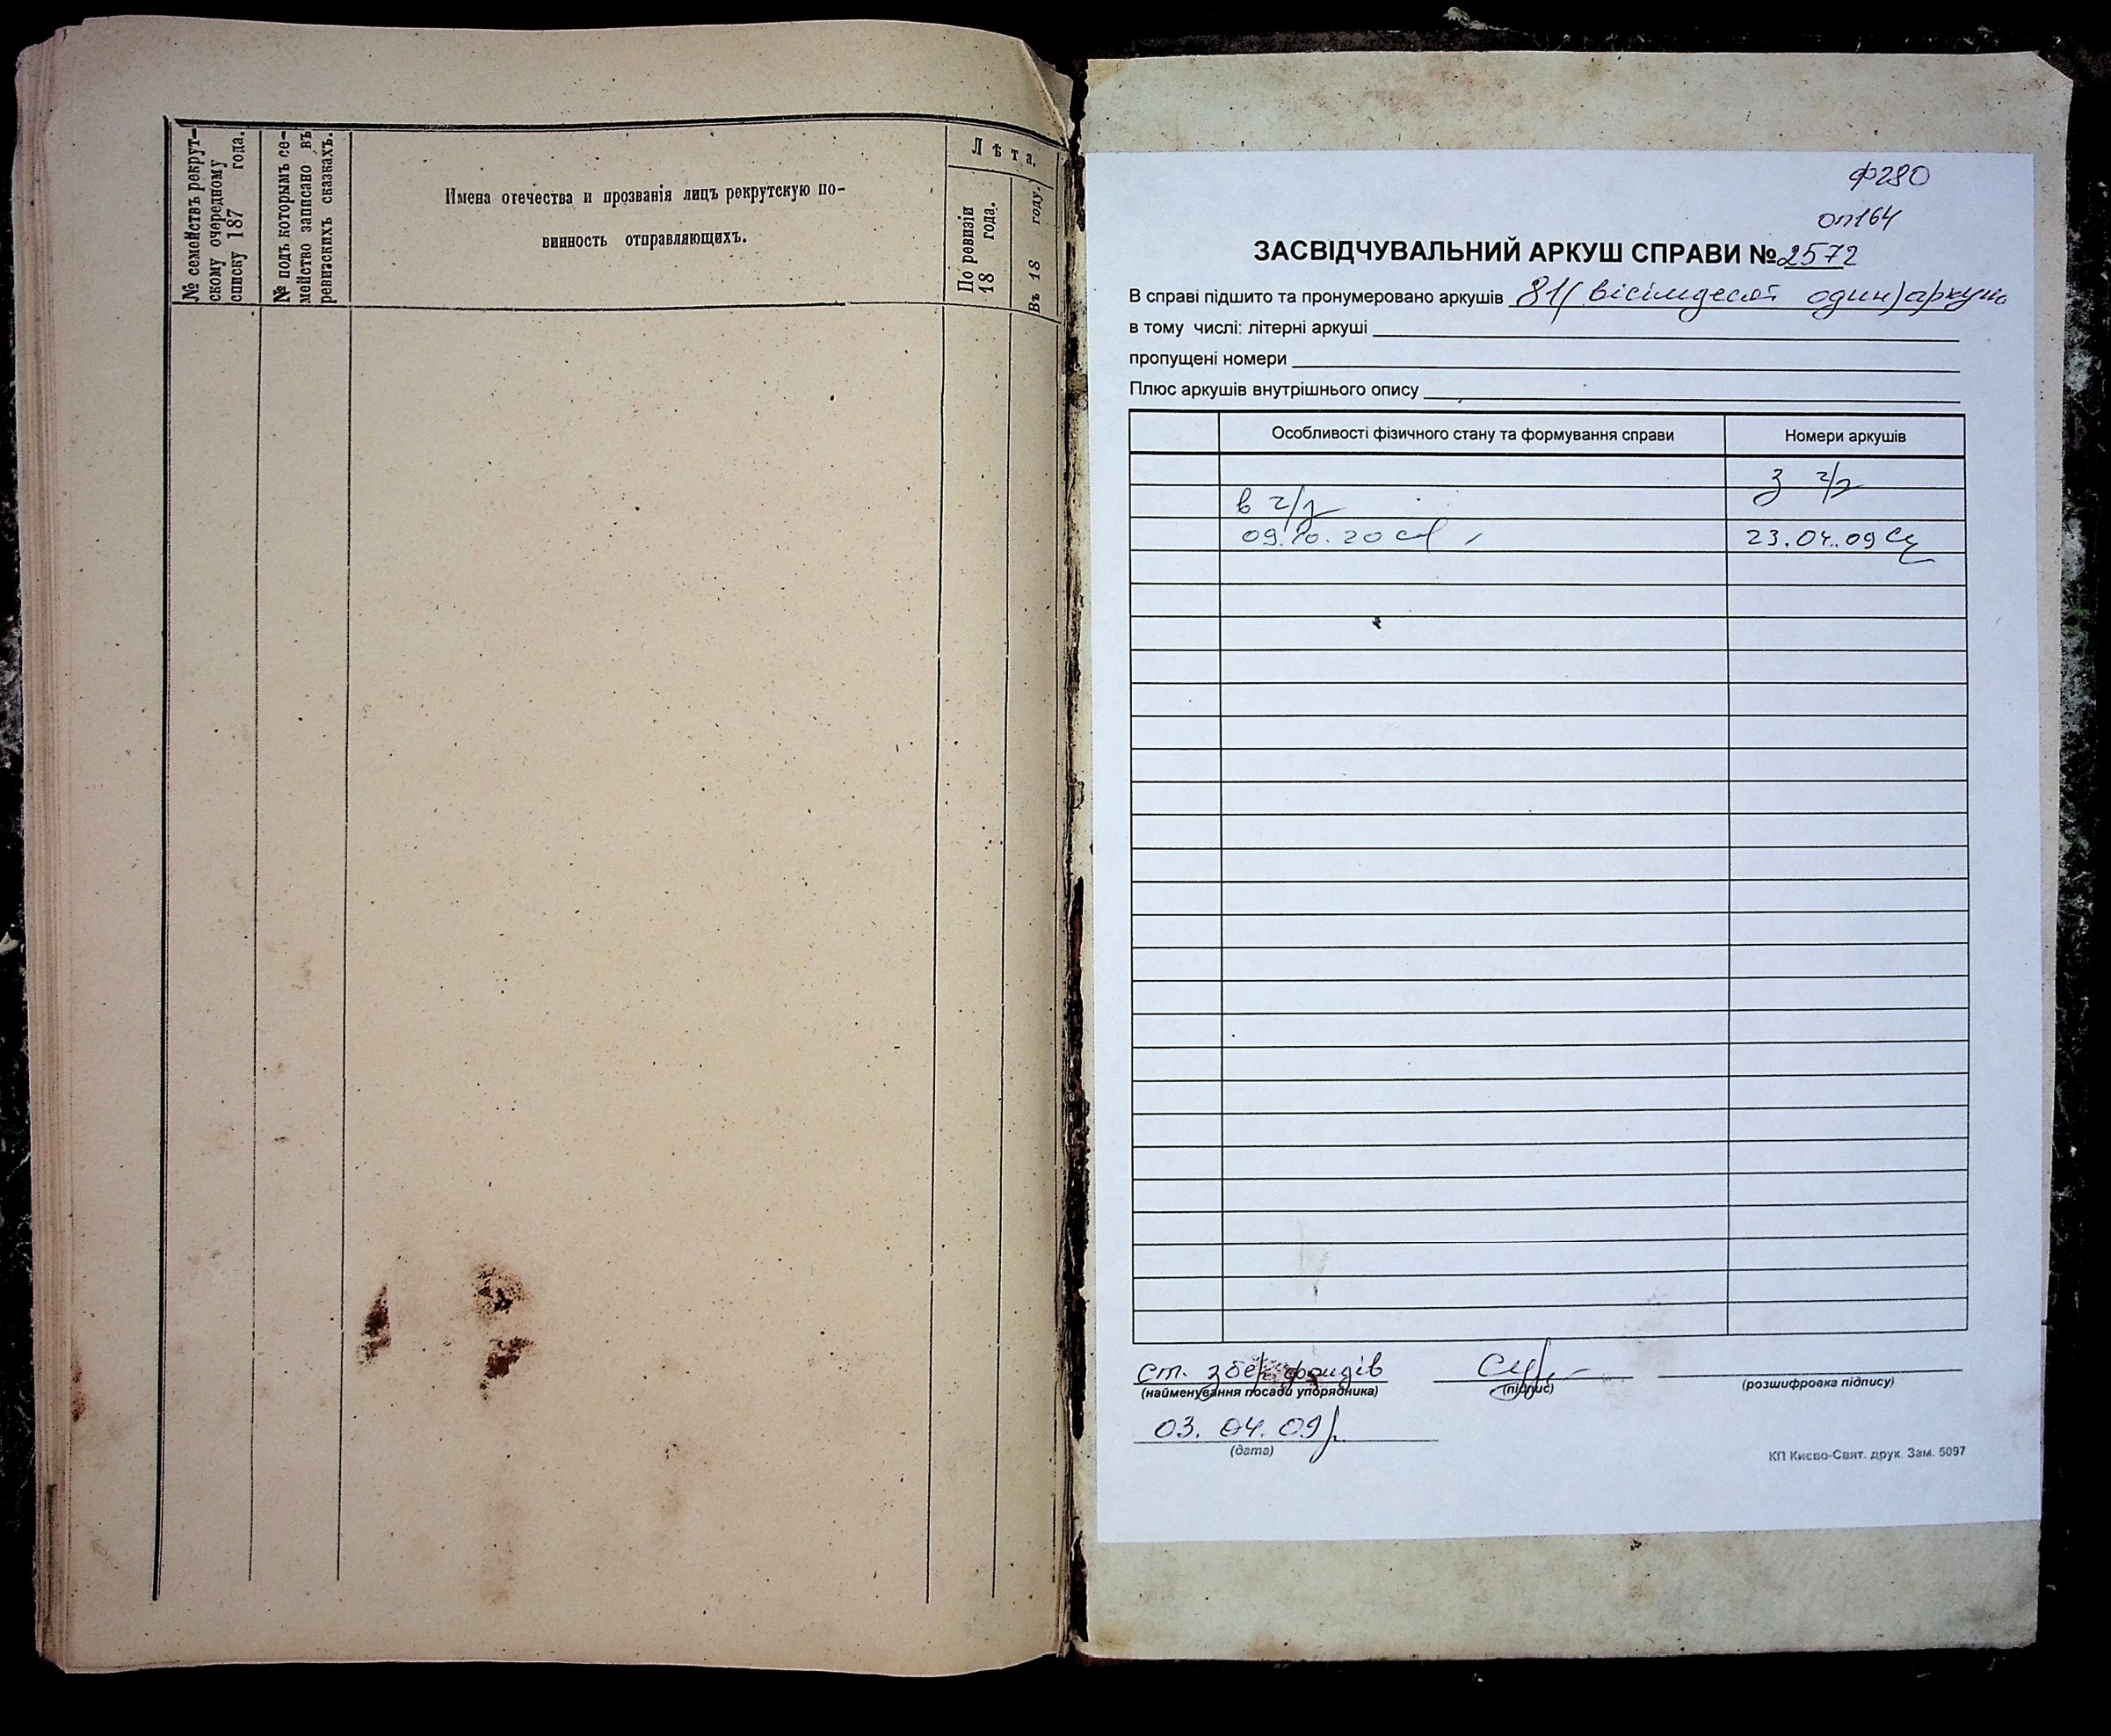 № семействъ рекрут-
скому очередному
списку 187 года.
№ подъ которымъ се-
мейство записано въ
ревизскихъ сказкахъ.
Имена отечества и прозванія лицъ рекрутскую по-
винность отправляющихъ.
Лѣта.
По ревизіи
18 года.
Въ 18 году.
ф280
оп164
ЗАСВІДЧУВАЛЬНИЙ АРКУШ СПРАВИ № 2572
В справі підшито та пронумеровано аркушів 81 (вісімдесят один) аркуш
в тому числі: літерні аркуші
пропущені номери
Плюс аркушів внутрішнього опису
Особливості фізичного стану та формування справи
Номери аркушів
з ч/з
в ч/з
09.10.20
23.04.09
ст. збер. фондів
(найменування посади упорядника)
(підпис)
(розшифровка підпису)
03.04.09р.
(дата)
КП Києво-Свят. друк. Зам. 5097